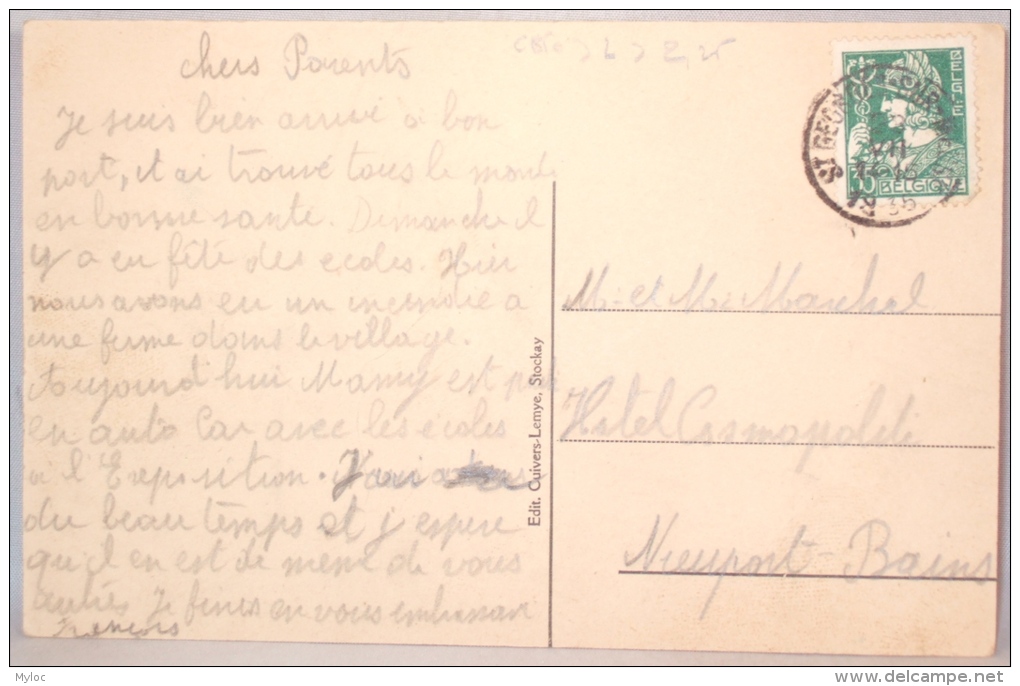 chers Parents
Je suis bien arrivé à bon
port, et ai trouvé tous le monde
en bonne santé. Dimanche il
y a eu fête des écoles. Hier
nous avons eu un incendie a
une ferme dans le village.
Aujourd'hui Mamy est parti
en auto Car avec les écoles
à l'Exposition.
du beau temps et j'espère
qu'il en est de même de vous
autres. Je finis en vous embrassant
François
Edit. Cuivers-Lemye, Stockay
ST GEORGES
VII
14-15
1935
BELGIE
BELGIQUE
10
M. et Me Maréchal
Hotel Cosmopolite
Nieuport-Bains
Myloc
delcampe.net